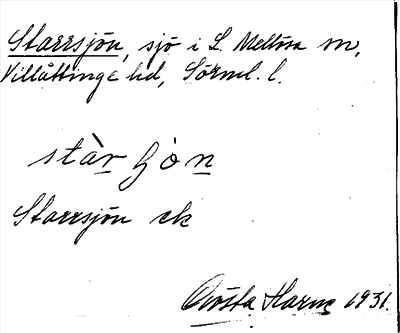 Starrsjön, sjö i L. Mellösa sn,
Villåttinge hd, Sörml. l.
stàr ʃon
Starrsjön ek
Gösta Harne 1931.